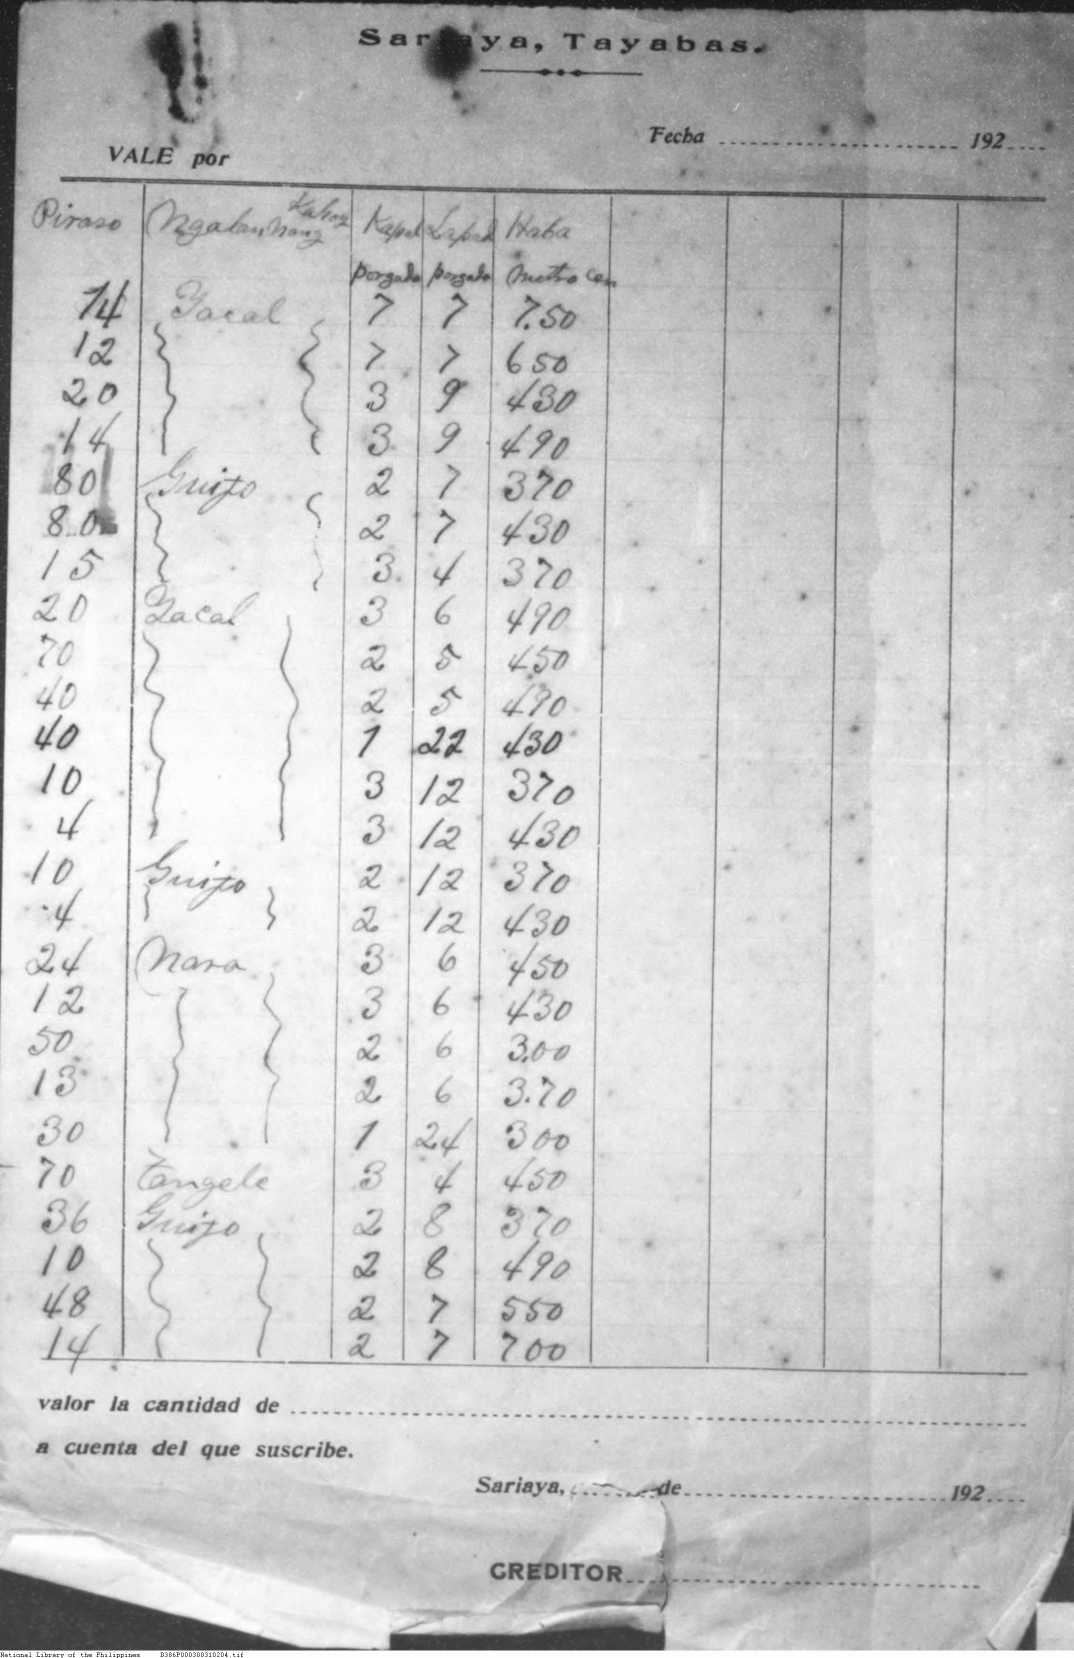 Sariaya, Tayabas.
Fecha 192
VALE por
Piraso Ngalan nang Kahoy Kapal Lapad Haba
porgada porgada metro cen
14 Yacal 7 7 7.50
12 7 7 650
20 3 9 430
14 3 9 490
80 Guijo 2 7 370
80 2 7 430
15 3 4 370
20 Yacal 3 6 490
70 2 5 450
40 2 5 490
40 1 22 430
10 3 12 370
4 3 12 430
10 Guijo 2 12 370
4 2 12 430
24 Nara 3 6 450
12 3 6 430
50 2 6 3.00
13 2 6 3.70
30 1 24 300
70 Tangele 3 4 450
36 Guijo 2 8 370
10 2 8 490
48 2 7 550
14 2 7 700
valor la cantidad de
a cuenta del que suscribe.
Sariaya, de 192
CREDITOR
National Library of the Philippines B386P000380310204.tif